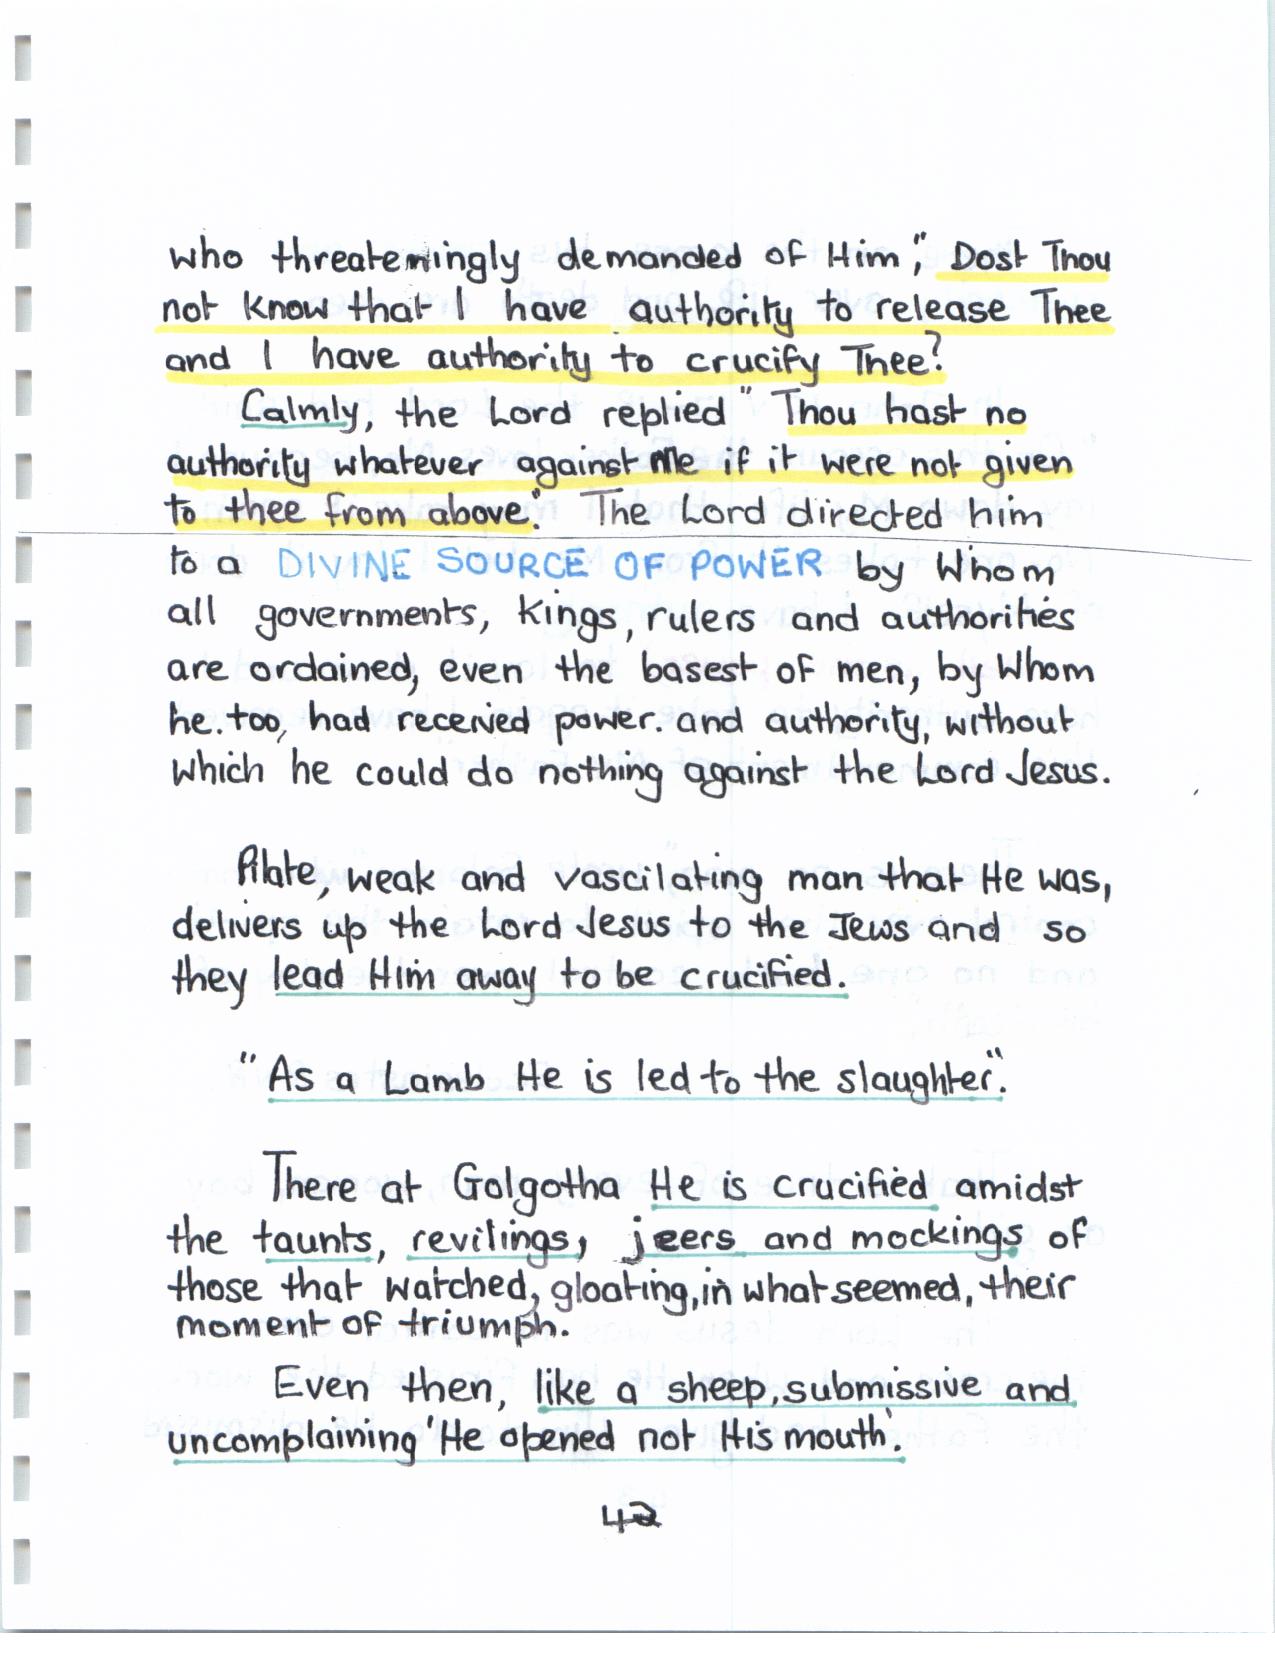 who threateningly demanded of Him," Dost Thou
not know that I have authority to release Thee
and I have authority to crucify Thee?
Calmly, the Lord replied "Thou hast no
authority whatever against Me if it were not given
to thee from above". The Lord directed him
to a DIVINE SOURCE OF POWER by Whom
all governments, Kings, rulers and authorities
are ordained, even the basest of men, by Whom
he. too, had received power. and authority, without
which he could do nothing against the Lord Jesus.
Pilate, weak and vascilating man that He was,
delivers up the Lord Jesus to the Jews and so
they lead Him away to be crucified.
"As a Lamb He is led to the slaughter".
There at Golgotha He is crucified amidst
the taunts, revilings, jeers and mockings of
those that watched, gloating, in what seemed, their
moment of triumph.
Even then, like a sheep, submissive and
uncomplaining 'He opened not His mouth'.
42